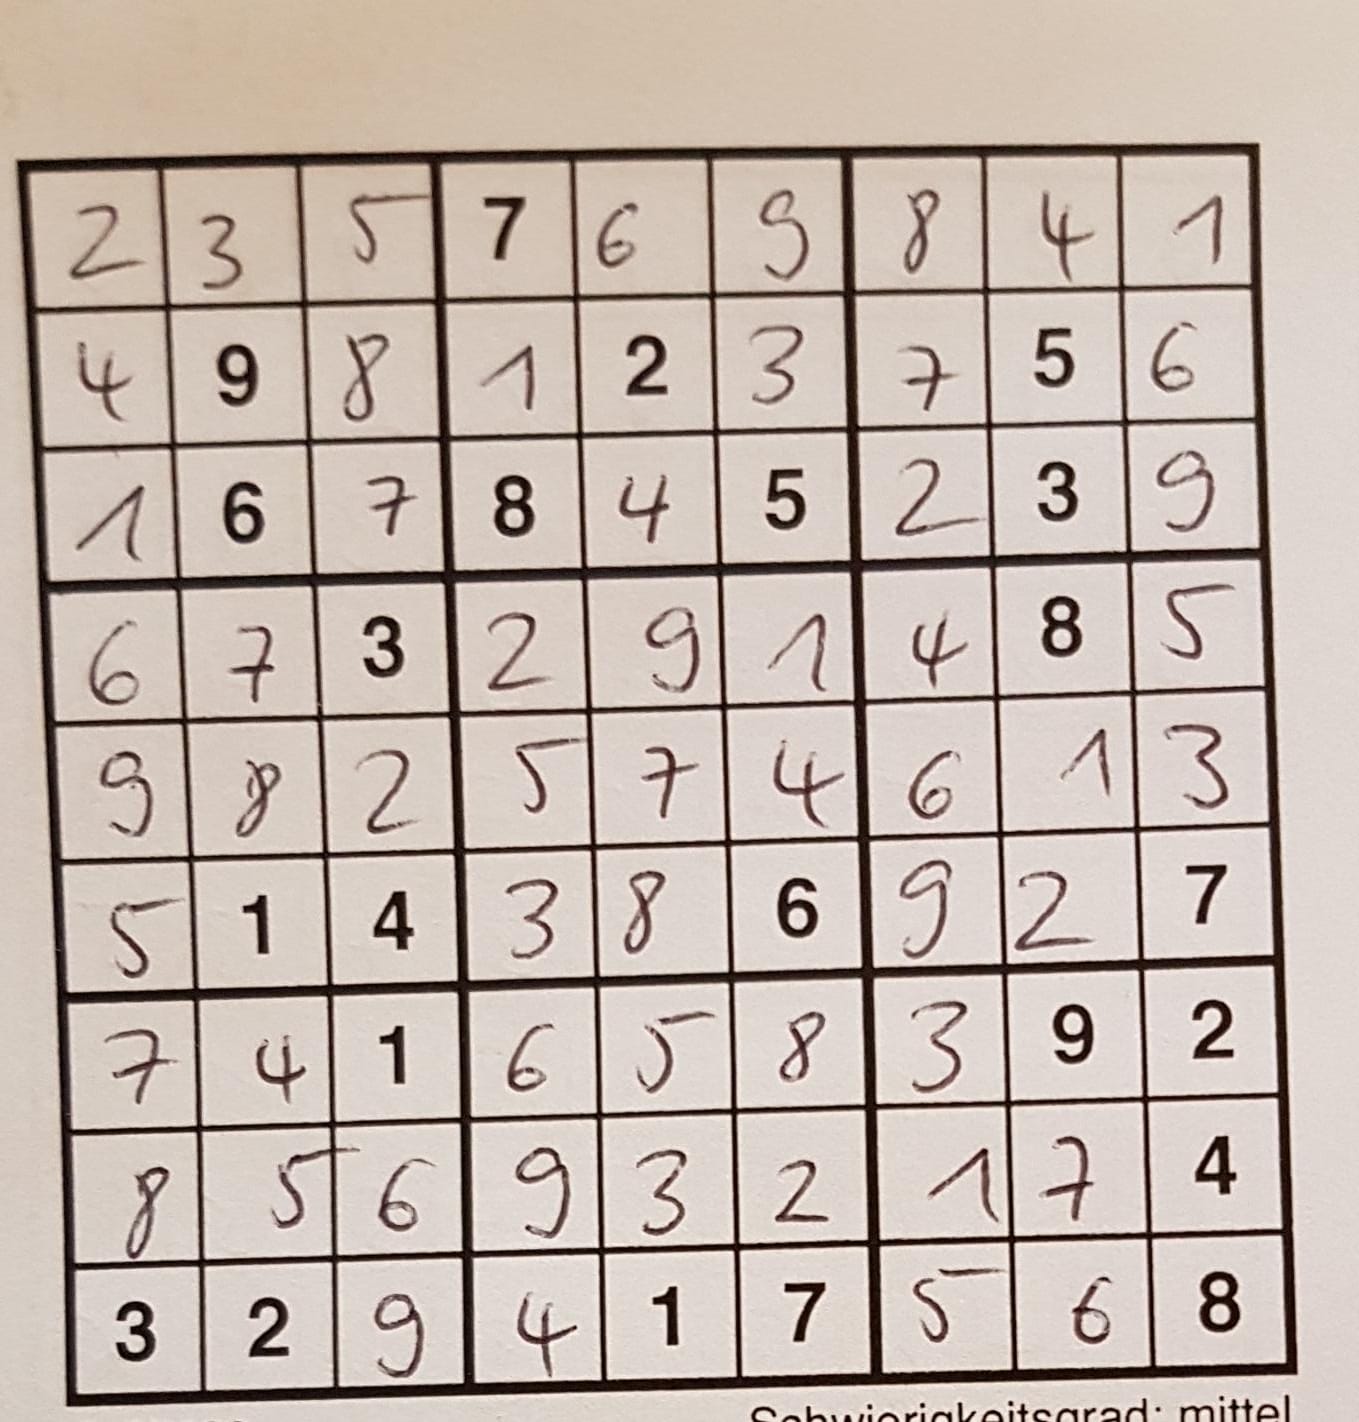 2 3 5 7 6 9 8 4 1
4 9 8 1 2 3 7 5 6
1 6 7 8 4 5 2 3 9
6 7 3 2 9 1 4 8 5
9 8 2 5 7 4 6 1 3
5 1 4 3 8 6 9 2 7
7 4 1 6 5 8 3 9 2
8 5 6 9 3 2 1 7 4
3 2 9 4 1 7 5 6 8
Schwierigkeitsgrad: mittel